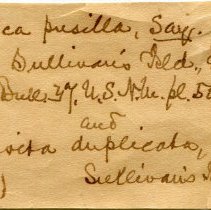 ca pusilla, Say.
Sullivan's Ild.,
Bull. 37, U.S.N.M. pl. 50
and
sita duplicata,
Sullivan's I